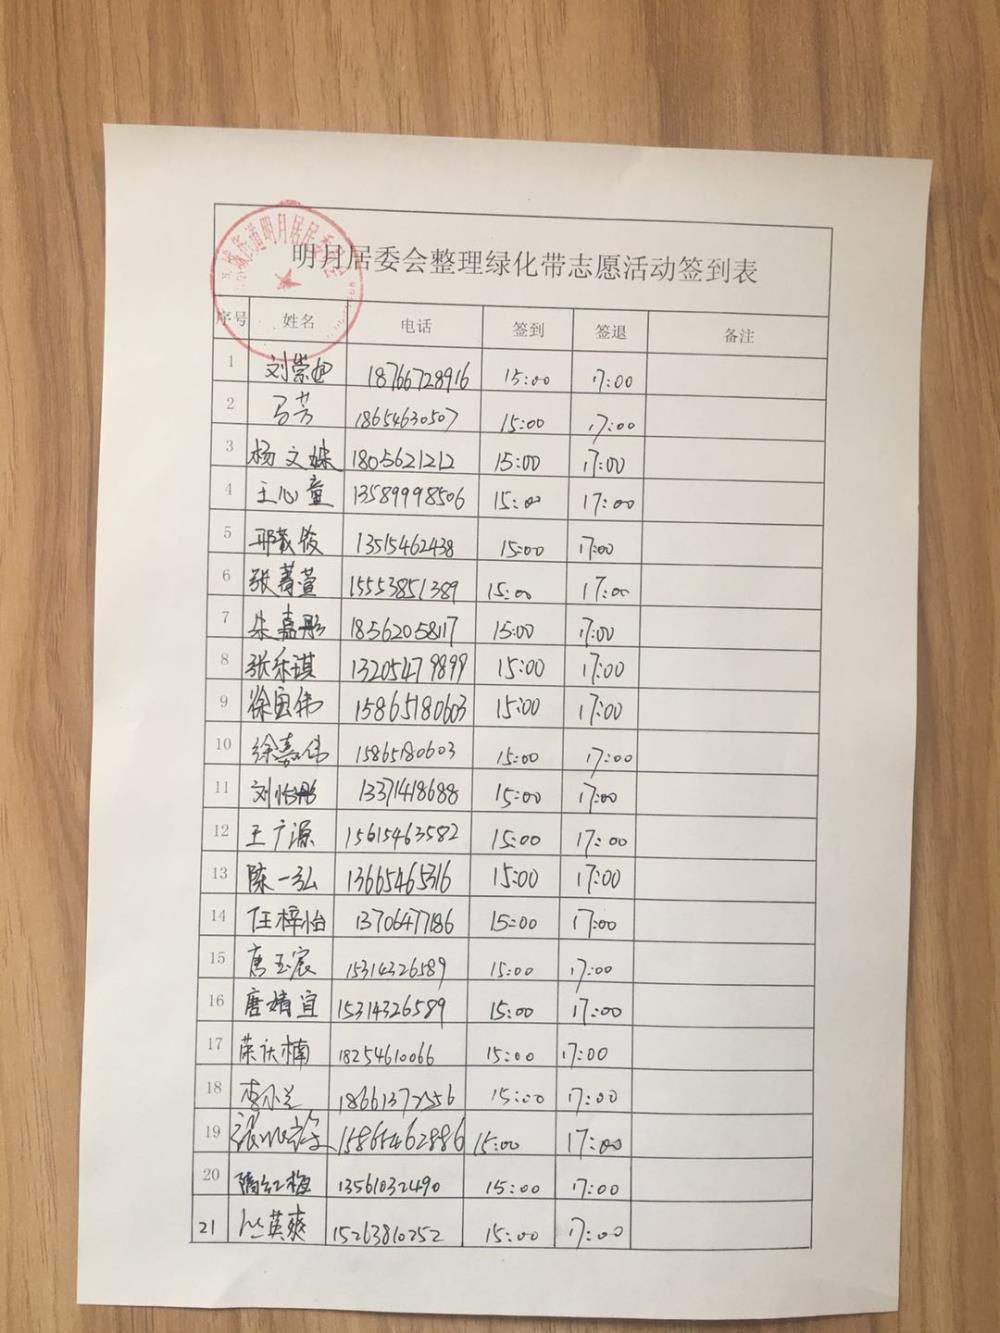 明月居委会整理绿化带志愿活动签到表
序号 姓名 电话 签到 签退 备注
1 刘崇 18766728916 15:00 17:00
2 马芳 18654630507 15:00 17:00
3 杨文 1805621212 15:00 17:00
4 王心童 13589998506 15:00 17:00
5 邢 俊 13515462438 15:00 17:00
6 张菁萱 15553851389 15:00 17:00
7 朱嘉彤 18562058117 15:00 17:00
8 张乐琪 13205479899 15:00 17:00
9 徐 伟 15865180603 15:00 17:00
10 徐嘉伟 15865180603 15:00 17:00
11 刘怡彤 13371418688 15:00 17:00
12 王广源 15615463582 15:00 17:00
13 陈一弘 13665465316 15:00 17:00
14 任梓怡 13706477186 15:00 17:00
15 唐玉宸 15314326589 15:00 17:00
16 唐婧宜 15314326589 15:00 17:00
17 荣庆楠 18254610066 15:00 17:00
18 李小兰 18661372556 15:00 17:00
19 张 15865462886 15:00 17:00
20 隋红梅 13561032490 15:00 17:00
21 丛英爽 15263810252 15:00 17:00